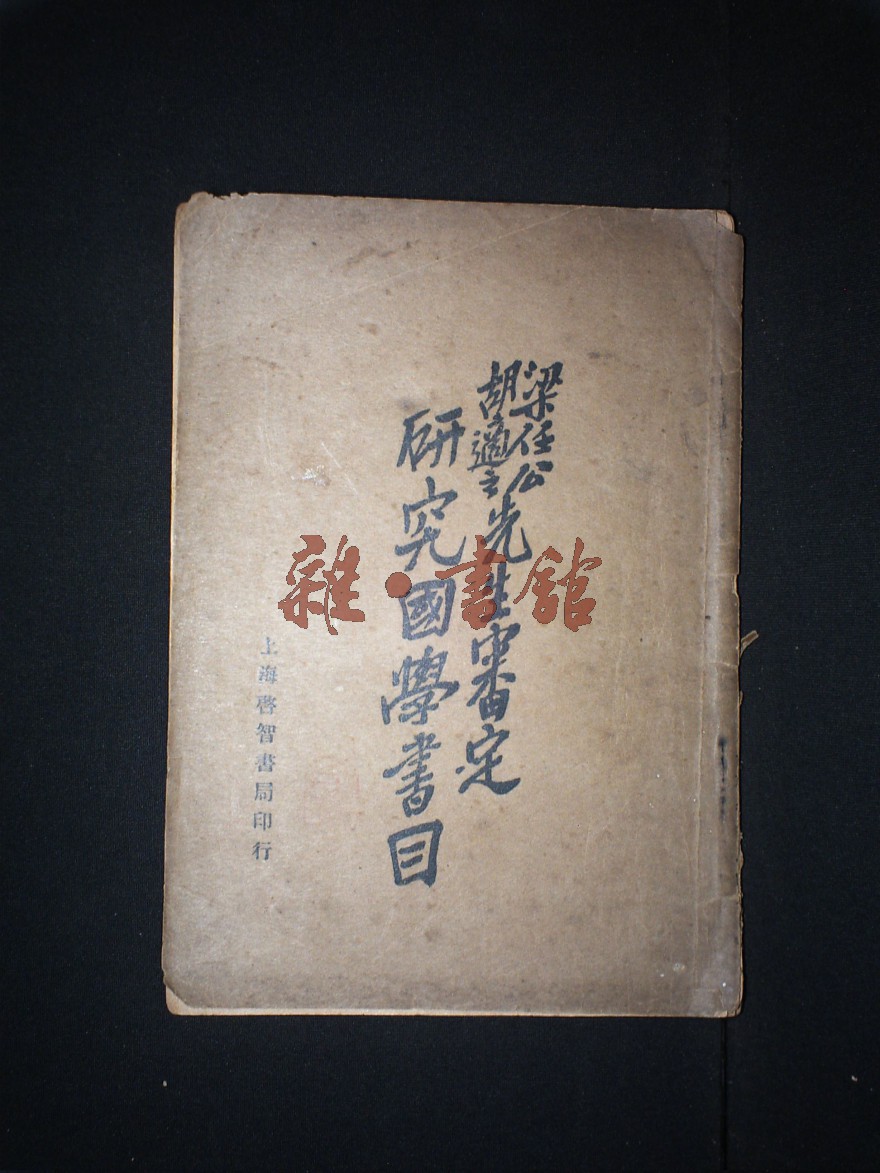 梁任公
胡適之
先生審定
研究國學書目
上海啓智書局印行
雜·書館